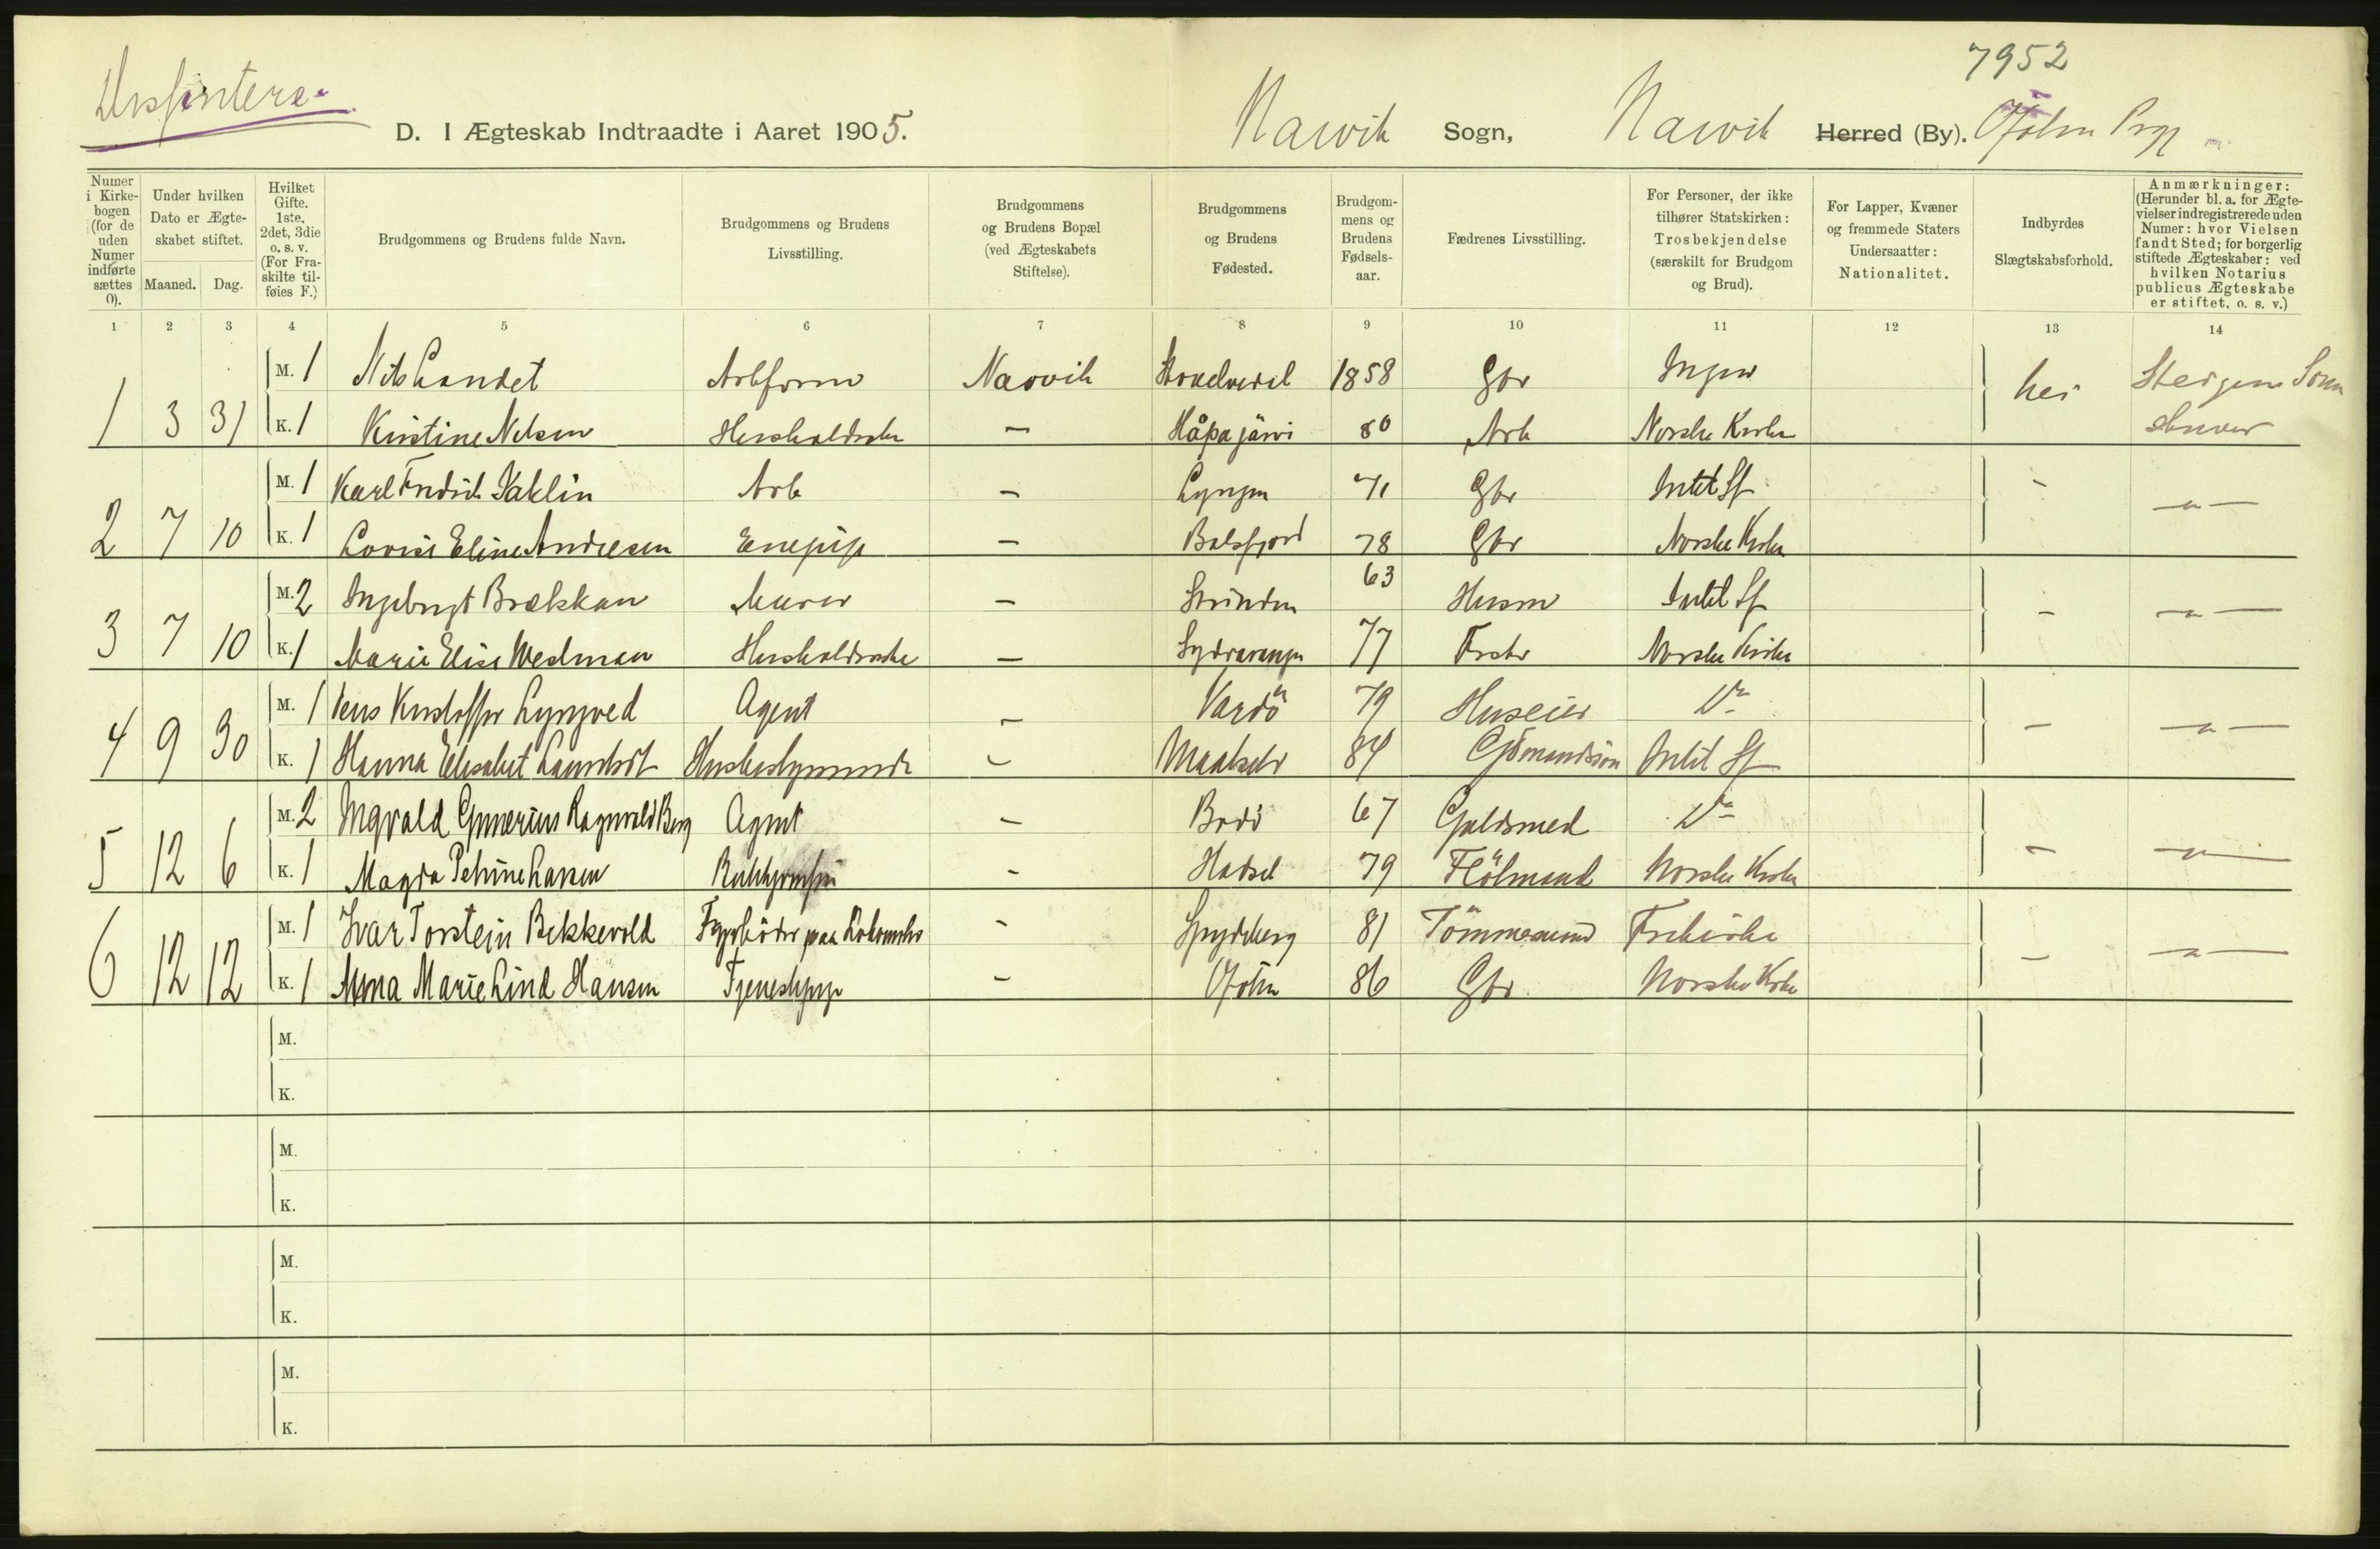 7952
Dissentere.
D. I Ægteskab Indtraadte i Aaret 1905. Narvik Sogn, Narvik Herred (By). Ofoten Prgj
Numer i Kirkebogen (for de uden Numer indførte sættes 0).
Under hvilken Dato er Ægteskabet stiftet.
Maaned. Dag.
Hvilket Gifte. 1ste, 2det, 3die o. s. v. (For Fraskilte tilføies F.)
Brudgommens og Brudens fulde Navn.
Brudgommens og Brudens Livsstilling.
Brudgommens og Brudens Bopæl (ved Ægteskabets Stiftelse).
Brudgommens og Brudens Fødested.
Brudgommens og Brudens Fødselsaar.
Fædrenes Livsstilling.
For Personer, der ikke tilhører Statskirken: Trosbekjendelse (særskilt for Brudgom og Brud).
For Lapper, Kvæner og fremmede Staters Undersaatter: Nationalitet.
Indbyrdes Slægtskabsforhold.
Anmærkninger: (Herunder bl. a. for Ægtevielser indregistrerede uden Numer: hvor Vielsen fandt Sted; for borgerlig stiftede Ægteskaber: ved hvilken Notarius publicus Ægteskabe er stiftet, o. s. v.)
1 2 3 4 5 6 7 8 9 10 11 12 13 14
M. 1 Nils Landet Arbform Narvik 1858 Gbr Ingen
1 3 31 K. 1 Kristine Nelsen Husholderske — Håpajärvi 80 Arb Norske Kirke nei
M. 1 Karl Fredrik Jaklin Arb — Lyngen 71 Gbr Intet Sf
2 7 10 K. 1 Lovise Eline Andresen — Balsfjord 78 Gbr Norske Kirke - — " —
M. 2 Ingebrigt Brækkan Murer — Strinden 63 Husm Intet Sf
3 7 10 K. 1 Marie Elise Wedman Husholderske — Sydvaranger 77 Norske Kirke — — " —
M. 1 Jens Kristoffer Lyngved Agent — Vardö 79 Huseier Do
4 9 30 K. 1 Hanna Elisabet Husbestyrerinde — Maalselv 84 Intet Sf — — " —
M. 2 Ingvald Gunerius Ragnvald Berg Agent — Bodö 67 Guldsmed Do
5 12 6 K. 1 Magda Petrine Larsen - Hadsel 79 Norske Kirke — — " —
M. 1 Ivar Torstein Bekkevold Fyrböder paa Lokomotiv - Spydeberg 81 Tömmermand Frikirke
6 12 12 K. 1 Anna Marie Lind Hansen Tjenestepige — Ofoten 86 Gbr Norske Kirke — — " —
M.
K.
M.
K.
M.
K.
M.
K.